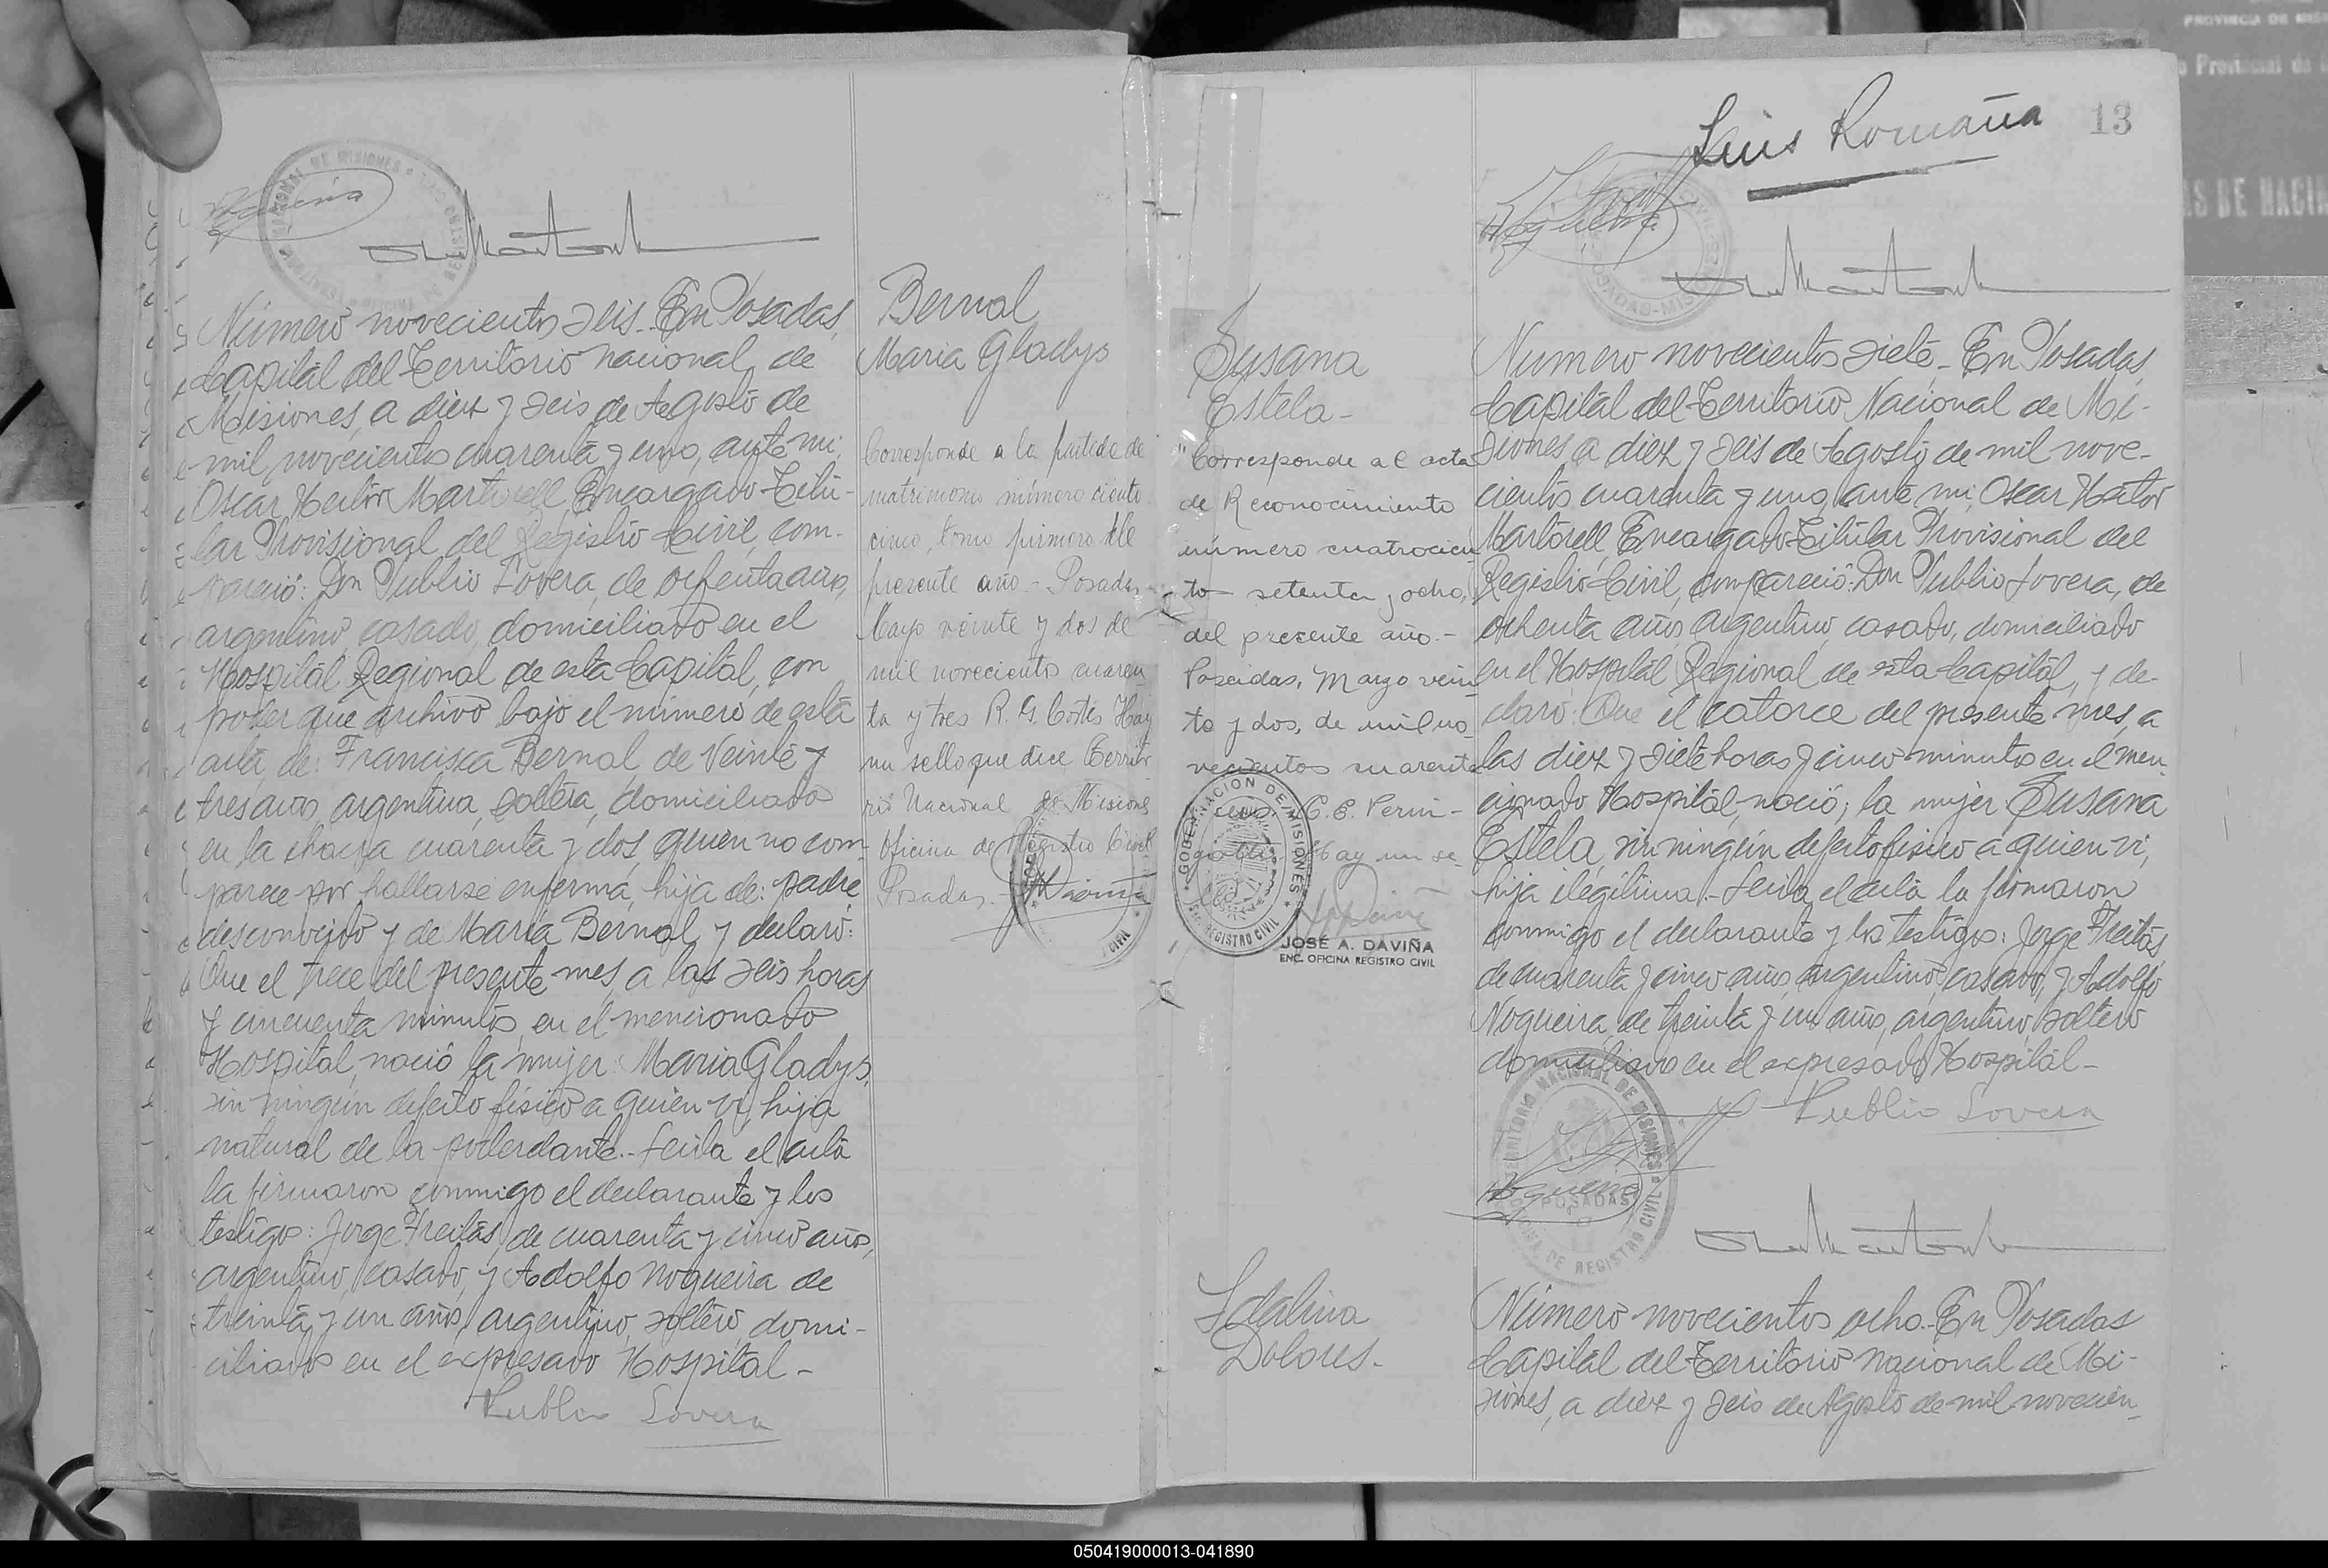 Número novecientos seis. En Posadas,
Capital del Territorio nacional de
Misiones, a diez y seis de Agosto de
mil novecientos cuarenta y uno, ante mi:
Oscar Heitor Martorell, Encargado Titu-
lar Provisional del Registro Civil, com-
pareció: Don Publio Lovera, de ochenta años,
argentino, casado, domiciliado en el
Hospital Regional de esta Capital, con
poder que archivo bajo el número de esta
acta, de: Francisca Bernal, de veinte y
tres años, argentina, soltera, domiciliado
en la chacra cuarenta y dos, quien no com-
parece por hallarse enferma, hija de: padre
desconocido y de María Bernal y declaró:
Que el trece del presente mes, a las seis horas
y cincuenta minutos, en el mencionado
Hospital, nació la mujer: Maria Gladys,
sin ningún defecto físico a quien vi, hija
natural de la poderdante.- Leida el acta
la firmaron conmigo el declarante y los
testigos: Jorge Freitas, de cuarenta y cinco años,
argentino, casado, y Adolfo Nogueira de
treinta y un años, argentino, soltero, domi-
ciliados en el expresado Hospital-
Publio Lovera
Bernal
Maria Gladys
Corresponde a la partida de
matrimonio número ciento
cinco, tomo primero del
presente año - Posadas
Mayo veinte y dos de
mil novecientos cuaren
ta y tres R. G. Cortés Hay
un sello que dice Territo
rio Nacional de Misiones
Oficina de Registro Civil
Posadas.
Luis Romaña
13
Susana
Estela-
"Corresponde al acta
de Reconocimiento
número cuatrocien
to setenta y ocho,
del presente año.-
Posadas, Marzo vein
te y dos, de mil no
vecientos cuarenta
Hay un se
GOBERNACION DE MISIONES
REGISTRO CIVIL
JOSÉ A. DAVIÑA
ENC. OFICINA REGISTRO CIVIL
Numero novecientos siete- En Posadas,
Capital del Territorio Nacional de Mi-
siones a diez y seis de Agosto de mil nove-
cientos cuarenta y uno, ante mi, Oscar Heitor
Martorell, Encargado Titular Provisional del
Registro Civil, compareció: Don Publio Lovera, de
ochenta años, argentino, casado, domiciliado
en el Hospital Regional de esta Capital, y de-
claró: Que el catorce del presente mes, a
las diez y siete horas y cinco minutos en el men
cionado Hospital, nació; la mujer Susana
Estela, sin ningún defecto físico a quien vi,
hija ilegítima.- Leida el acta la firmaron
conmigo el declarante y los testigos: Jorge Freitas,
de cuarenta y cinco años, argentino, casado, y Adolfo
Nogueira, de treinta y un años, argentino, soltero
domiciliado en el expresado Hospital-
Publio Lovera
TERRITORIO NACIONAL DE MISIONES
POSADAS
OFICINA DE REGISTRO CIVIL
Idalina
Dolores.-
Número novecientos ocho.- En Posadas
Capital del Territorio Nacional de Mi-
siones, a diez y seis de Agosto de mil novecien
050419000013-041890